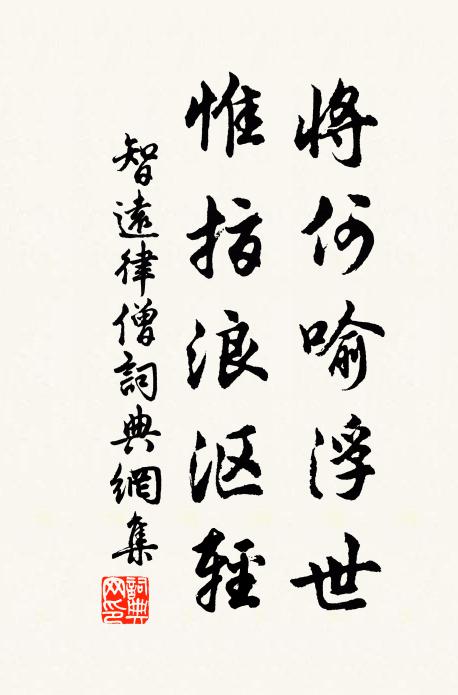 將何喻浮世
惟指浪沤輕
智遠律僧詞典網集
詞典网印